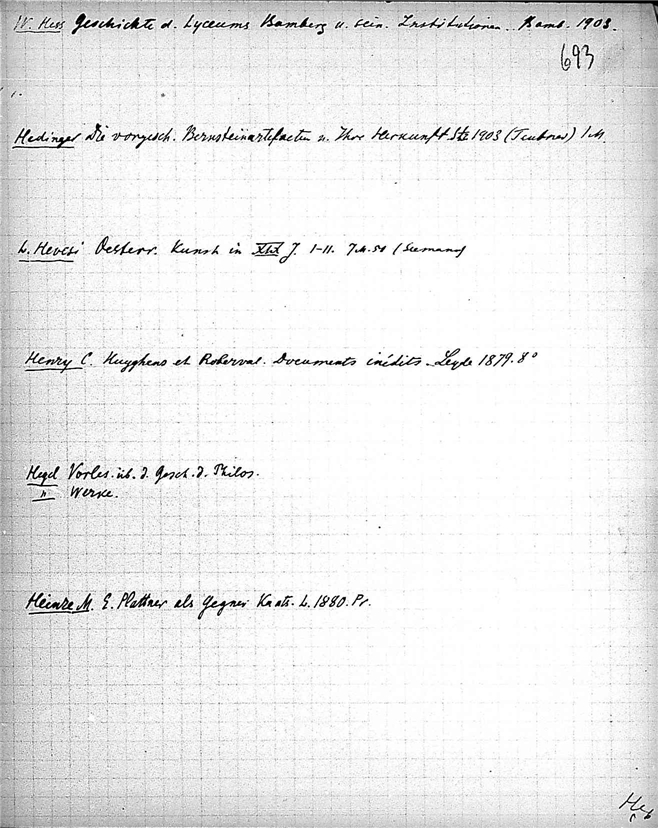 W. Hess Geschichte d. Lyceums Bamberg u. sein. Institutionen. Bamb. 1903.
693
Hedinger Die vorgesch. Bernsteinartefacten u. Ihre Herkunft. 1903 (Teubner) 1 M.
L. Hevesi Oesterr. Kunst in XIX J. I-II. 7 M. 50 (Seemann)
Henry C. Huyghens et Roberval. Documents inédits. Leyde 1879. 8°
Hegel Vorles. üb. d. Gesch. d. Philos.
" Werke.
Heinze M. E. Plattner als Gegner Kants. L. 1880. Pr.